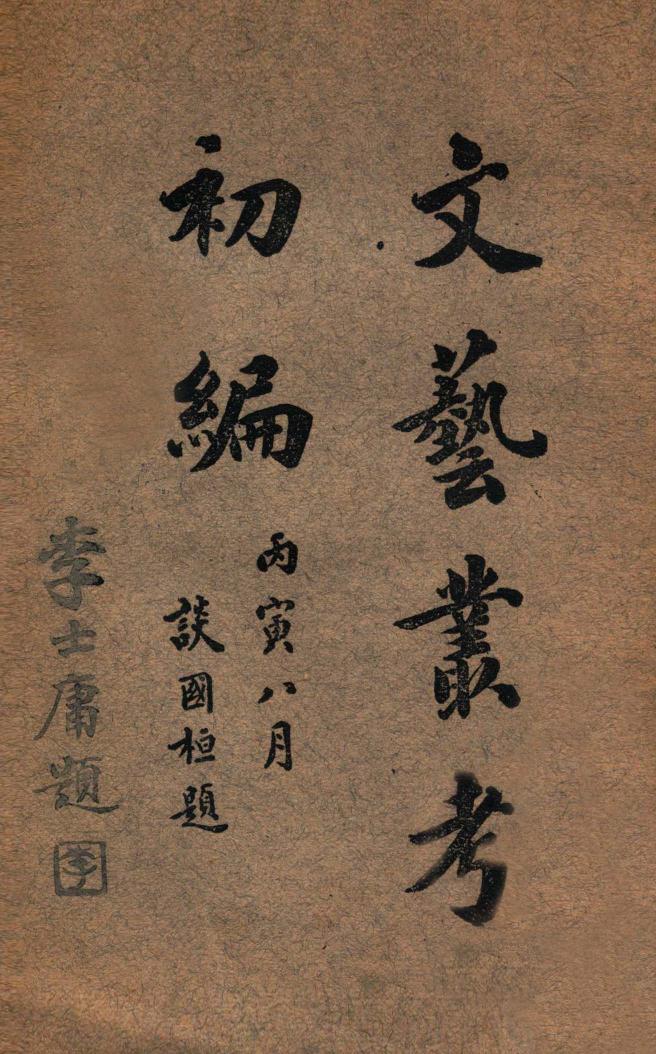 文藝叢考
初編
丙寅八月
談國桓題
李士庸題
李